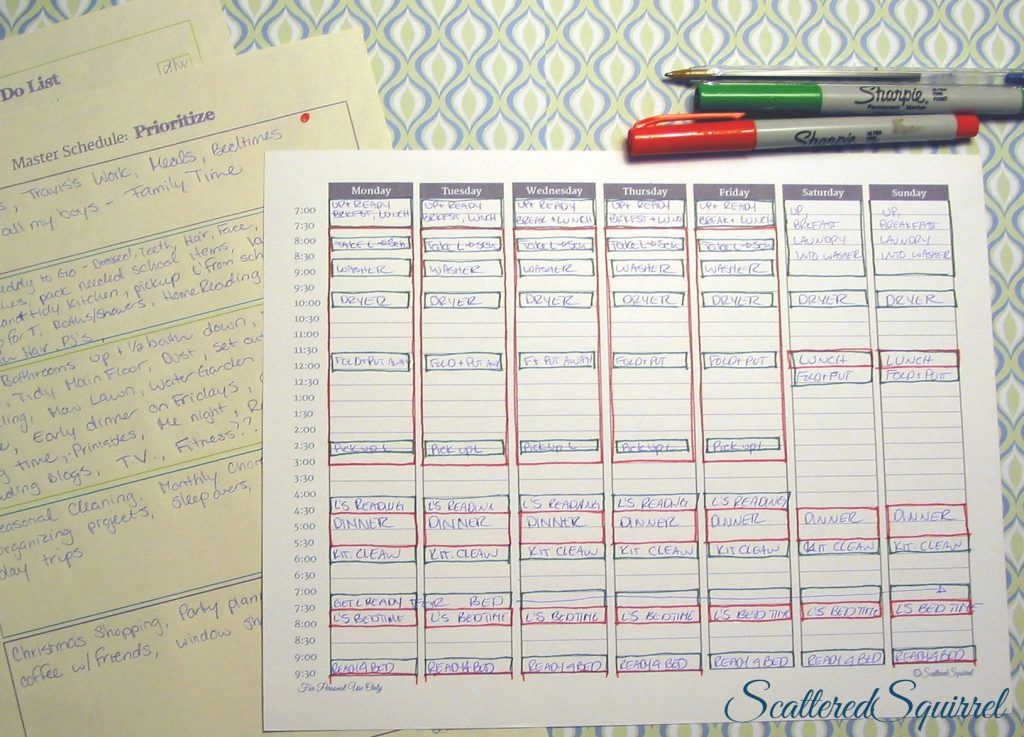 Do List
Master Schedule: Prioritize
Travis's Work, Meals, Bedtimes
all my boys - Family Time
Dressed, Teeth, Hair, Face,
pack needed school items,
Tidy Kitchen, pickup L from
for T, Baths/Showers, Home Reading
Hair, PJ's,
Bathrooms up + 1/2 bath down,
Tidy Main Floor, Dust, set out
Mow Lawn, Water Garden
Early dinner on Fridays,
time, Printables, Me night,
Blogs, T.V., Fitness??
Cleaning, Monthly
organizing projects, sleepovers,
day trips
Christmas Shopping, Party
coffee w/ friends, window
Sharpie
Permanent Marker
Sharpie
Monday Tuesday Wednesday Thursday Friday Saturday Sunday
7:00 UP + READY UP + READY UP + READY UP + READY UP + READY UP, UP,
BRKFST, LUNCH BRKFST, LUNCH BREAK + LUNCH BRKFST + LUNCH BREAK + LUNCH BRKFAST BREAKFAST
7:30
8:00 TAKE L → Sch TAKE L → Sch TAKE L → Sch TAKE L → Sch TAKE L → Sch LAUNDRY LAUNDRY
8:30 INTO WASHER INTO WASHER
9:00 WASHER WASHER WASHER WASHER WASHER
9:30
10:00 DRYER DRYER DRYER DRYER DRYER DRYER DRYER
10:30
11:00
11:30
12:00 FOLD + PUT AWAY FOLD + PUT AWAY F + PUT AWAY FOLD + PUT FOLD + PUT LUNCH LUNCH
12:30 FOLD + PUT FOLD + PUT
1:00
1:30
2:30 Pick up L Pick up L Pick up L Pick up L Pick up L
3:00
3:30
4:00 L'S READING L'S READING L'S READING L'S READING L'S READING
5:00 DINNER DINNER DINNER DINNER DINNER DINNER DINNER
5:30
6:00 KIT. CLEAN KIT. CLEAN KIT CLEAN KIT CLEAN KIT CLEAN KIT CLEAN KIT. CLEAN
6:30
7:00
7:30 GET L READY FOR BED
8:00 L'S BEDTIME L'S BEDTIME L'S BEDTIME L'S BEDTIME L'S BEDTIME L'S BEDTIME L'S BED TIME
8:30
9:00
9:30 READY 4 BED READY 4 BED READY 4 BED READY 4 BED READY 4 BED READY 4 BED READY 4 BED
For Personal Use Only
©ScatteredSquirrel
ScatteredSquirrel